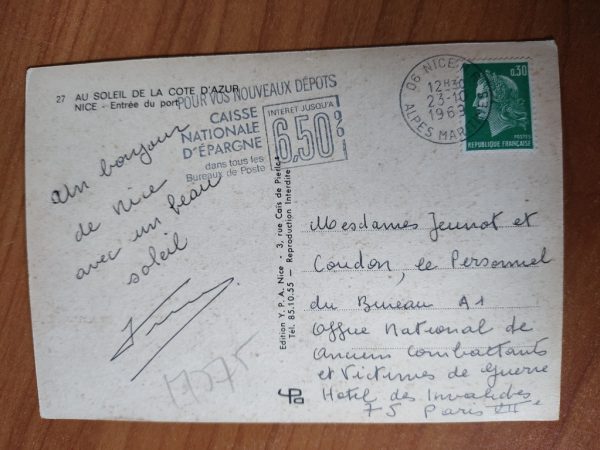 27 AU SOLEIL DE LA COTE D'AZUR
NICE - Entrée du port
POUR VOS NOUVEAUX DÉPOTS
CAISSE
NATIONALE
D'ÉPARGNE
dans tous les
Bureaux de Poste
INTERET JUSQU'A
6,50%
06 NICE
12H30
23-10
1969
ALPES MAR
0,30
POSTES
REPUBLIQUE FRANÇAISE
Un bonjour
de Nice
avec un beau
soleil
Edition Y. P. A. Nice - 3, rue Cais de Pierlas
Tél. 85.10.55 - Reproduction Interdite
Mesdames Jeunot et
Coudon, le Personnel
du Bureau A1
Office National de
Anciens Combattants
et Victimes de Guerre
Hotel des Invalides
75 Paris VII e